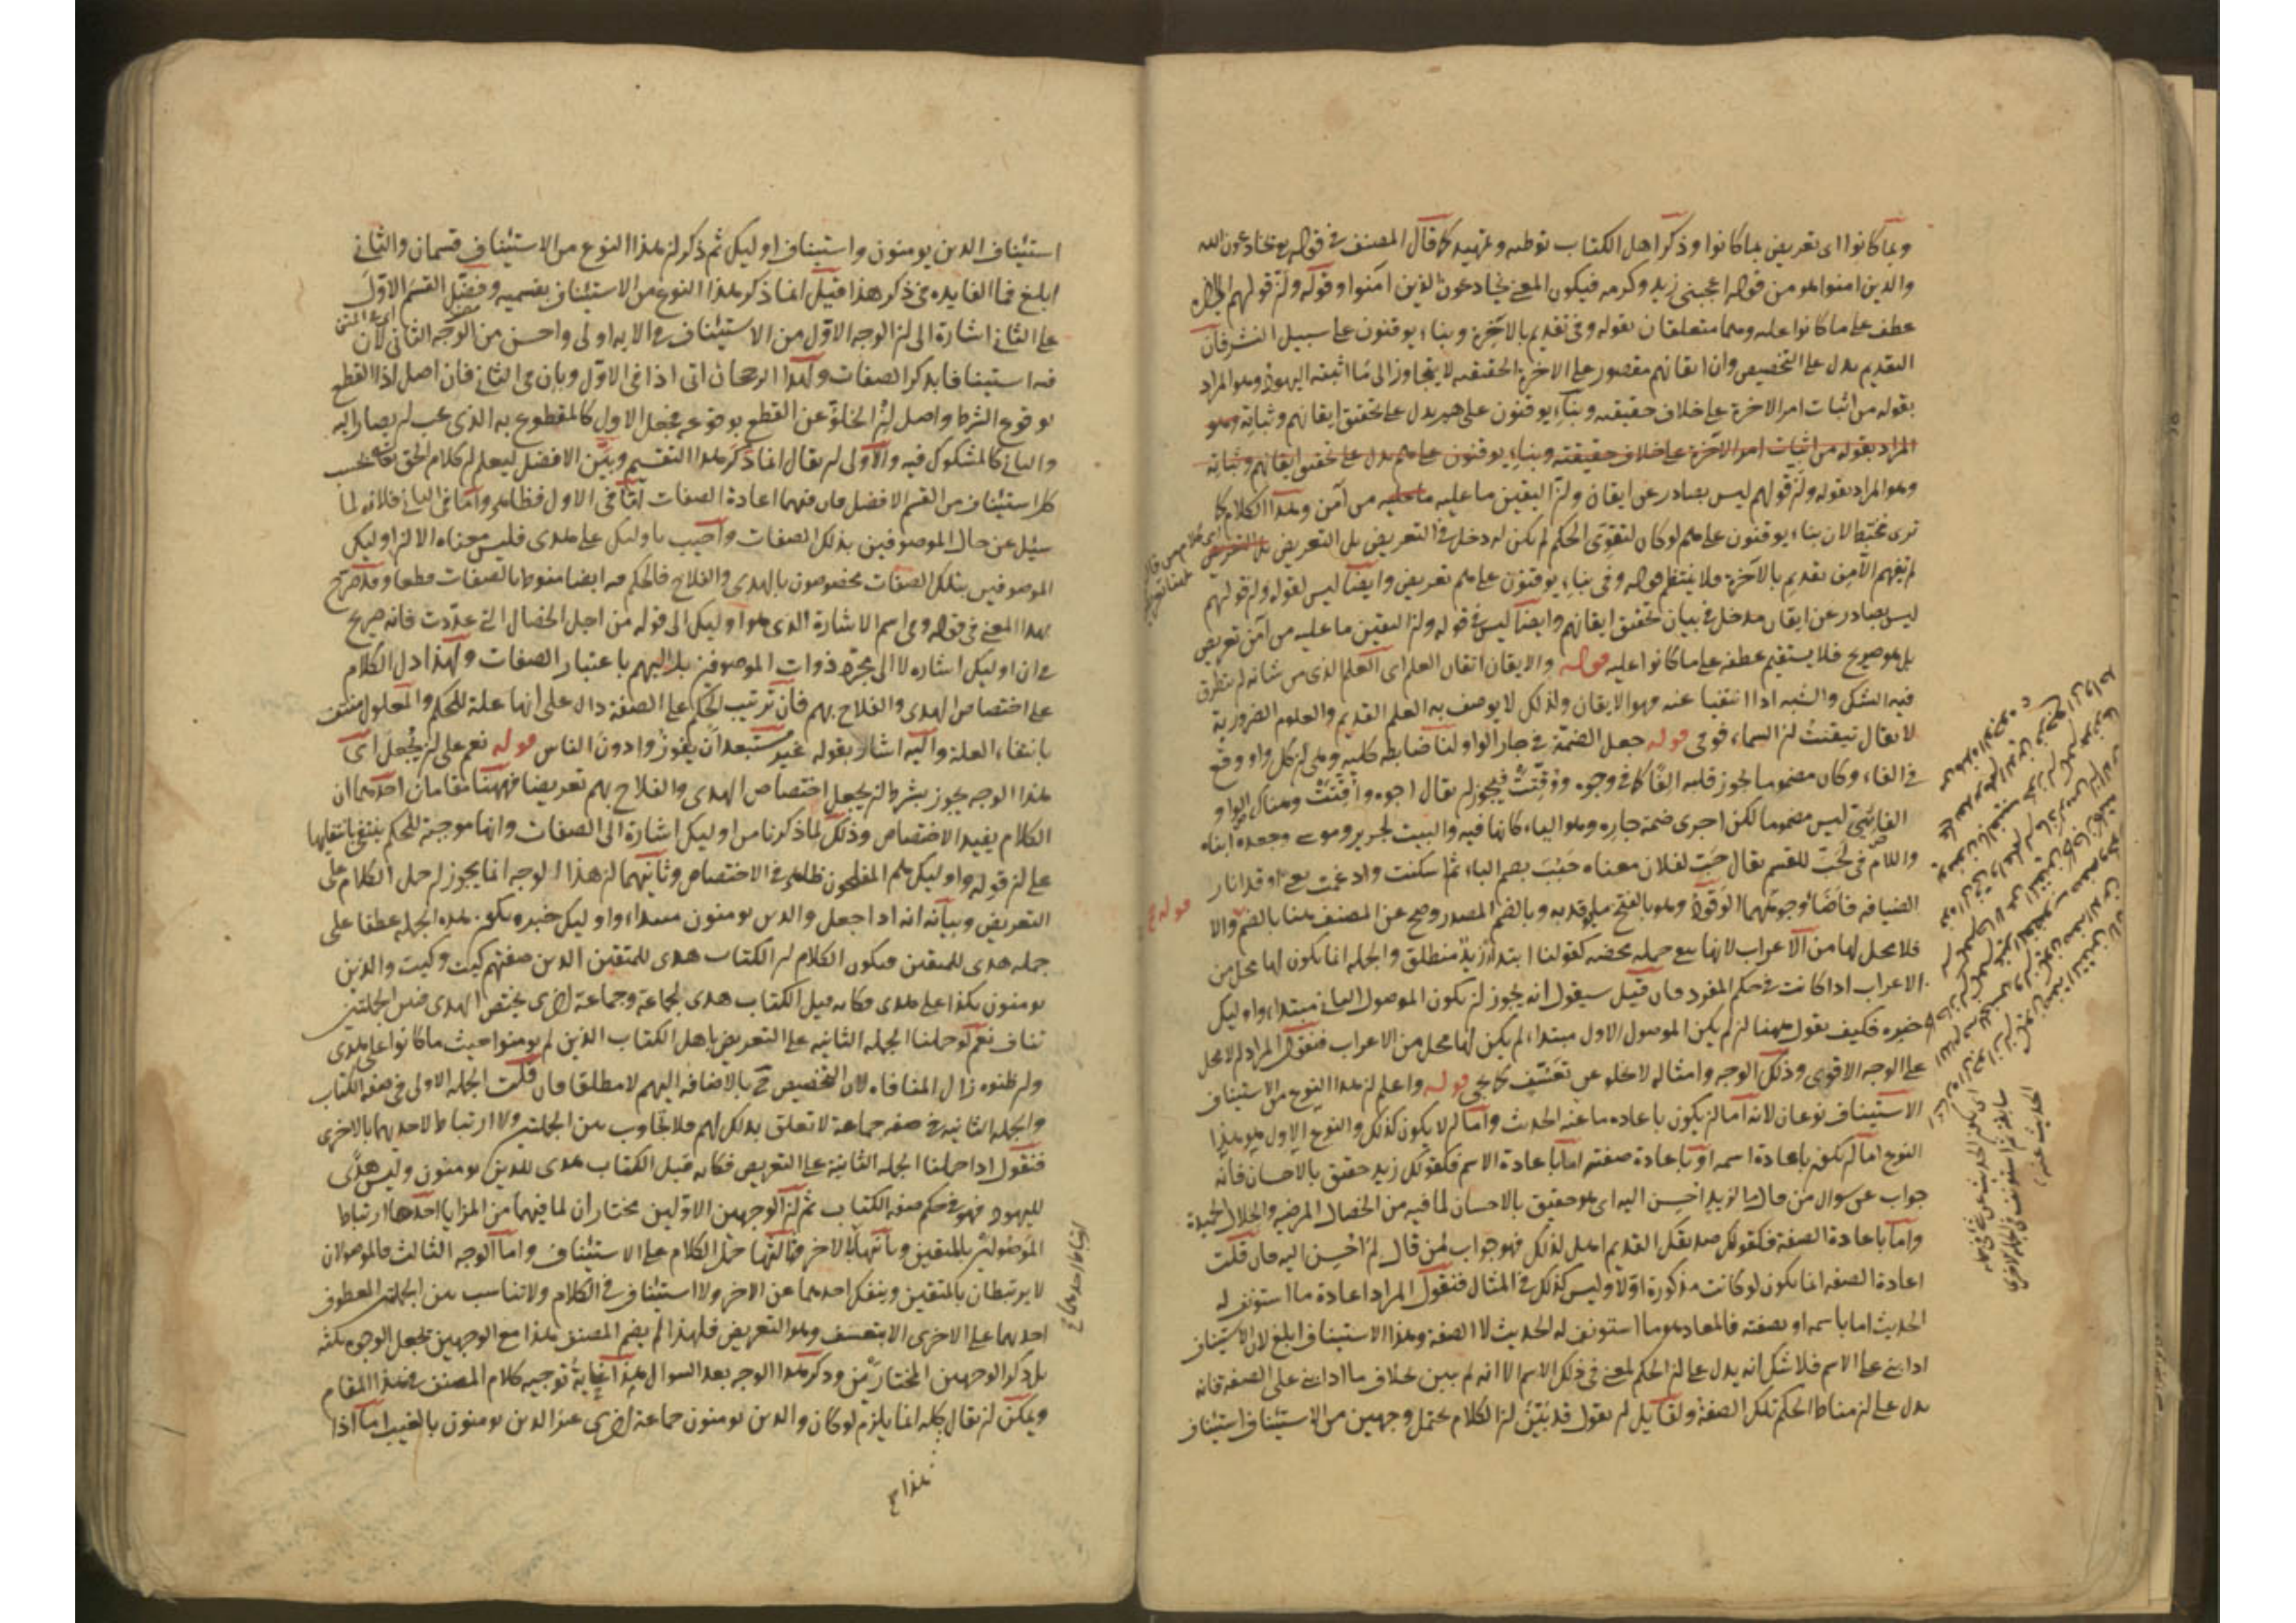 وبما كانوا اى تعريض بما كانوا وذكر اهل الكتاب توطئه وتمهيد كما قال المصنف فى قوله يخادعون الله
والذين امنوا هو من قوله اعجبنى زيد وكرمه فيكون المعنى يخادعون الذين امنوا وقوله وان قولهم
عطف على ما كانوا عليه وهما متعلقان بقوله وفى تقديم بالآخرة وبناء يوقنون على سبيل النشر فان
التقديم يدل على التخصيص وان ايقانهم مقصور على الاخرة الحقيقيه لا يتجاوز الى ما اثبته اليهود وهو المراد
بقوله من اثبات امر الاخرة على خلاف حقيقته وبناء يوقنون على هم يدل على تحقيق ايقانهم وثباته وهو
المراد بقوله من اثبات امر الآخرة على خلاف حقيقته وبناء يوقنون على هم يدل على تحقيق ايقانهم وثباته
وهو المراد بقوله وان قولهم ليس بصادر عن ايقان وان اليقين ما عليه ما عليه من آمن وهذا الكلام كما
ترى مختبط لان بناء يوقنون على هم لو كان لتقوى الحكم لم يكن له دخل فى التعريض بل التعريض بل التعريض
لم يفهم الا من تقديم بالآخرة فلا ينتظم قوله وفى بناء يوقنون على هم تعريض وايضا ليس لقوله وان قولهم
ليس بصادر عن ايقان مدخل فى بيان تحقيق ايقانهم وايضا ليس فى قوله وان اليقين ما عليه من آمن تعريض
بل هو صريح فلا يستقيم عطفه على ما كانوا عليه قوله والايقان اتقان العلم اى العلم الذى من شانه ان يتطرق
فيه الشك والشبه اذا انتفيا عنه وهو الايقان ولذلك لا يوصف به العلم القديم والعلوم الضرورية
لا يقال تيقنت ان السماء فوقى قوله جعل الضمة فى جار الواو لنا ضابطه كليه وهى ان كل واو وقع
فى الفاء وكان مضموما يجوز قلبه الفا كما فى وجوه ووقتت فيجوز ان يقال اجوه واقتت وهناك الواو
ليس مضموما لكن اجرى ضمة جاره وهو الياء كانها فيه والبيت لجرير وموسى وجعده ابناه
واللام فى لحب للقسم يقال حب لفلان معناه حبب بضم الباء ثم اسكنت وادغمت اوقدا نار
الضيافه فاضا وجوههما الوقود وهو بالفتح ما يوقد به وبالضم المصدر وصح عن المصنف هنا بالضم والا
فلا محل لها من الاعراب لانها جمله محضه كقولنا ابتداء زيد منطلق والجمله انما يكون لها محل من
الاعراب اذا كانت فى حكم المفرد فان قيل سيقول انه يجوز ان يكون الموصول الثانى مبتداء واوليك
خبره فكيف يقول ههنا ان لم يكن الموصول الاول مبتداء لم يكن لها محل من الاعراب فنقول المراد ان لا محل
على الوجه الاقوى وذلك الوجه وامثاله لا يخلو عن تعسف كما يجئ قوله واعلم ان هذا النوع من الاستيناف
الاستيناف نوعان لانه اما ان يكون باعاده ما عنه الحديث واما ان لا يكون كذلك والنوع الاول هو هذا
النوع اما ان يكون باعادة اسمه او باعادة صفته اما باعادة الاسم فكقولك زيد حقيق بالاحسان فانه
جواب عن سوال من قال ما لزيد احسن اليه اى هو حقيق بالاحسان لما فيه من الخصال المرضيه والخلال الحميدة
واما باعادة الصفة فكقولك صديقك القديم اهل لذلك فهو جواب لمن قال لم احسن اليه فان قلت
اعادة الصفه انما يكون لو كانت مذكورة اولا وليس كذلك فى المثال فنقول المراد اعادة ما استونف له
الحديث اما باسمه او بصفته فالمعاد هو ما استونف له الحديث لا الصفة وهذا الاستيناف ابلغ لان الاستيناف
اذا بنى على الاسم فلا شك انه يدل على ان الحكم لمعنى فى ذلك الاسم الا انه لم يبين بخلاف ما اذا بنى على الصفه فانه
يدل على ان مناط الحكم تلك الصفة ولقايل ان يقول قد بين ان الكلام يحتمل وجهين من الاستيناف استيناف
قوله
استيناف الذين يومنون واستيناف اوليك ثم ذكر ان هذا النوع من الاستيناف قسمان والثانى
ابلغ فما الفايده فى ذكر هذا قيل انما ذكر هذا النوع من الاستيناف بقسميه وفضل القسم الاول
على الثانى اشارة الى ان الوجه الاول من الاستيناف فى الايه اولى واحسن من الوجه الثانى لان
فيه استينافا بذكر الصفات وهذا الرجحان اتى اذا فى الاول وبان فى الثانى فان اصل اذا القطع
بوقوع الشرط واصل ان الخلو عن القطع بوقوعه فجعل الاول كالمقطوع به الذى يجب ان يصار اليه
والثانى كالمشكوك فيه والاولى ان يقال انما ذكر هذا التقسيم وبين الافضل ليعلم ان كلام الحق
كل استيناف من القسم الافضل فان فيهما اعادة الصفات اما فى الاول فظاهر واما فى الثانى فلانه لما
سئل عن حال الموصوفين بذلك الصفات واجيب باوليك على هدى فليس معناه الا ان اوليك
الموصوفين بتلك الصفات مخصوصون بالهدى والفلاح فالحكم فيه ايضا منوط بالصفات قطعا وقد صرح
بهذا المعنى فى قوله وفى اسم الاشارة الذى هو اوليك الى قوله من اجل الخصال التى عددت فانه صريح
فى ان اوليك اشاره لا الى مجرد ذوات الموصوفين بل اليهم باعتبار الصفات ولهذا دل الكلام
على اختصاص الهدى والفلاح بهم فان ترتيب الحكم على الصفة دال على انها علة للحكم والمعلول منتف
بانتفاء العلة واليه اشار بقوله غير مستبعد ان يفوزوا دون الناس قوله نعم على ان يجعل اى
هذا الوجه يجوز بشرط ان يجعل اختصاص الهدى والفلاح بهم تعريضا فههنا مقامان احدهما ان
الكلام يفيد الاختصاص وذلك لما ذكرنا من اوليك اشارة الى الصفات وانها موجبة للحكم ينتفى بانتفايها
على ان قوله واوليك هم المفلحون ظاهر فى الاختصاص وثانيهما ان هذا الوجه انما يجوز ان حمل الكلام على
التعريض وبيانه انه اذا جعل والذين يومنون مبتداء واوليك خبره يكون هذه الجمله عطفا على
جمله هدى للمتقين فيكون الكلام ان الكتاب هدى للمتقين الذين صفتهم كيت وكيت والذين
يومنون بكذا على هدى فكانه قيل الكتاب هدى لجماعة وجماعة اخرى يختص الهدى فبين الجملتين
تناف نعم لو حملنا الجمله الثانيه على التعريض باهل الكتاب الذين لم يومنوا حيث ما كانوا على هدى
وان ظنوه زال المنافاه لان التخصيص بالاضافه اليهم لا مطلقا فان قلت الجمله الاولى فى صفه الكتاب
والجمله الثانيه فى صفه جماعة لا تعلق بذلك لهم فلا تجاوب بين الجملتين ولا ارتباط لاحديهما بالاخرى
فنقول اذا حملنا الجمله الثانية على التعريض فكانه قيل الكتاب هدى للذين يومنون وليس هدى
لليهود فهو فى حكم صفه الكتاب ثم ان الوجهين الاولين مختاران لما فيهما من المزايا احدها ارتباط
الموصولين بالمتقين وثانيها بالآخر وثالثها حمل الكلام على الاستيناف واما الوجه الثالث فالموصولان
لا يرتبطان بالمتقين وينفك احدهما عن الاخر ولا استيناف فى الكلام ولا تناسب بين الجملتين المعطوف
احديهما على الاخرى الا بتعسف وهو التعريض فلهذا لم يضم المصنف هذا مع الوجهين بجعل الوجوه ثلثه
بل ذكر الوجهين المختارين وذكر هذا الوجه بعد السوال هذا غاية توجيه كلام المصنف فى هذا المقام
ويمكن ان يقال كله انما يلزم لو كان والذين يومنون جماعة اخرى غير الذين يومنون بالغيب اما اذا